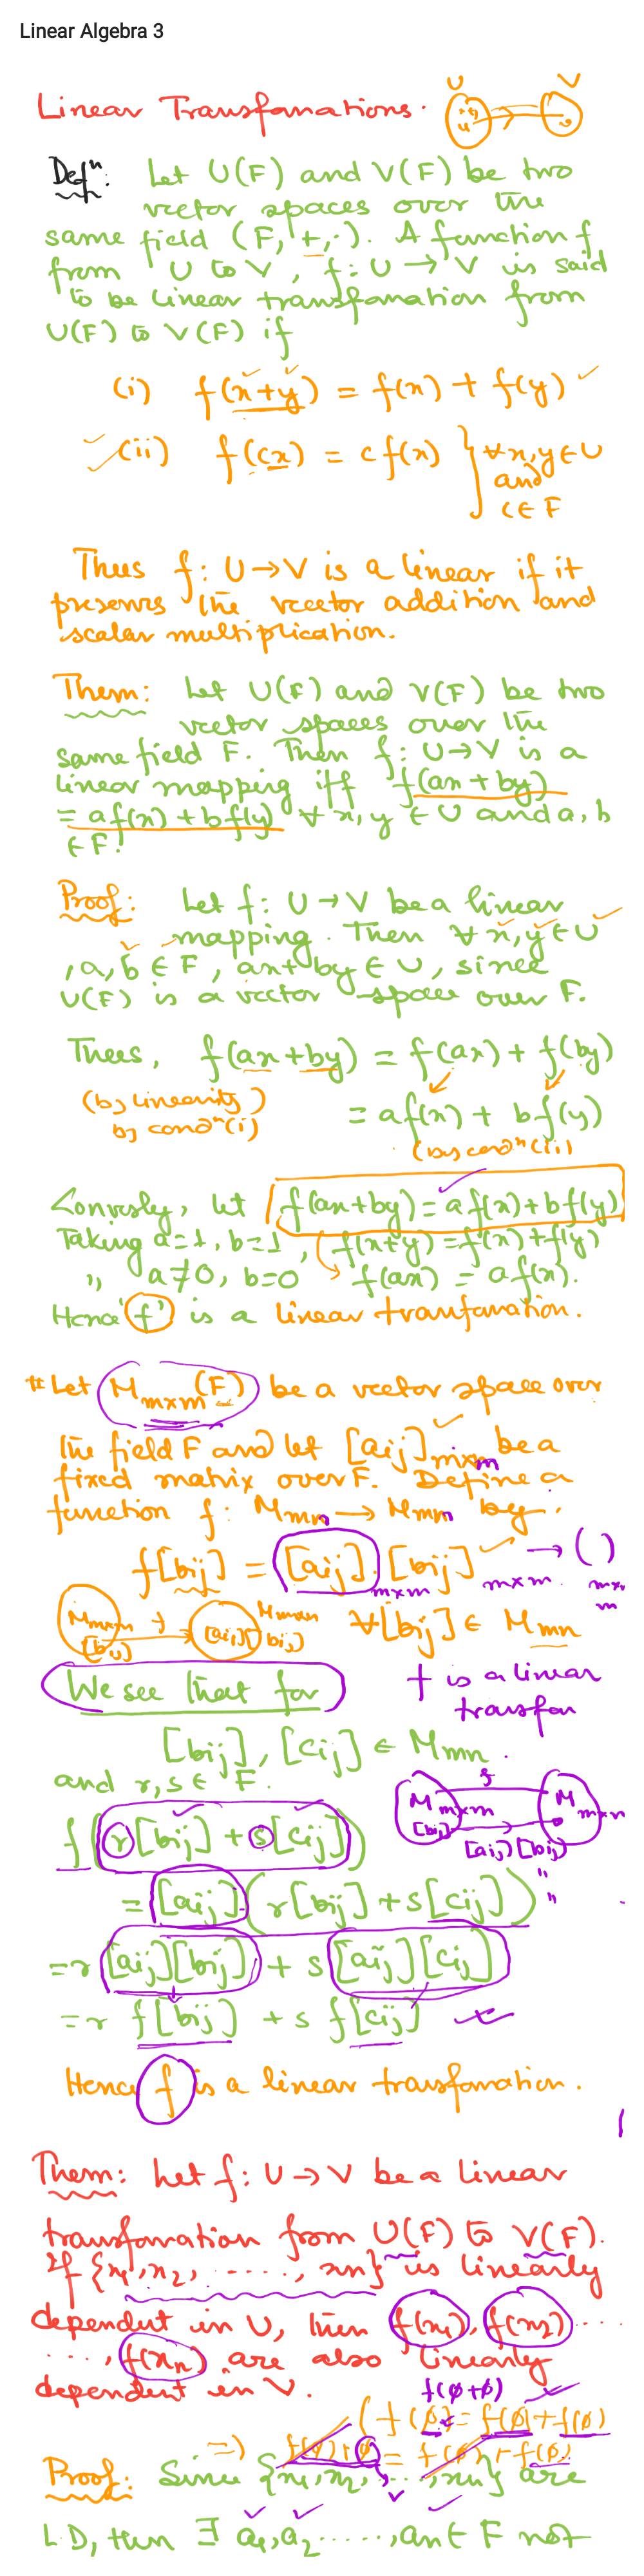 Linear Algebra 3
Linear Transfomations.
U V
Defⁿ: Let U(F) and V(F) be two
vector spaces over the
same field (F,+,·). A function f
from U to V, f: U → V is said
to be linear transfomation from
U(F) to V(F) if
(i) f(x+y) = f(x) + f(y)
(ii) f(cx) = c f(x) } ∀x,y∈U
and
c∈F
Thus f: U→V is a linear if it
preserves the vector addition and
scalar multiplication.
Them: Let U(F) and V(F) be two
vector spaces over the
same field F. Then f: U→V is a
linear mapping iff f(ax+by)
= af(x)+bf(y) ∀ x,y ∈ U and a,b
∈F.
Proof: Let f: U→V be a linear
mapping. Then ∀ x,y∈U
,a,b ∈ F, ax+by ∈ U, since
U(F) is a vector space over F.
Thus, f(ax+by) = f(ax) + f(by)
(by linearity)
by condⁿ(i)
= af(x) + bf(y)
(by condⁿ(ii)
Convrsly, let f(ax+by) = a f(x)+b f(y)
Taking a=1, b=1, f(x+y)=f(x)+f(y)
,, a≠0, b=0 → f(ax) = af(x).
Hence 'f' is a linear tranfomation.
# Let M m×m (F) be a vector space over
the field F and let [aij] m×m be a
fixed matrix over F. Define a
function f: Mmn → Mmn by.
f[bij] = [aij] m×m · [bij] m×m → ( ) m×m
M f M
[bij] [aij][bij]
∀[bij] ∈ Mmn
We see that for
f is a linear
transfon
[bij], [cij] ∈ Mmn.
and r,s ∈ F.
M m×m f M m×n
[bij]
[aij][bij]
f(r[bij] + s[cij])
= [aij](r[bij] + s[cij])
=r[aij][bij] + s[aij][cij]
=r f[bij] + s f[cij]
Hence f is a linear transfomation.
Them: Let f: U→V be a linear
transfomation from U(F) to V(F).
If {x1,x2, ....., xn} is linearly
dependent in U, then f(x1), f(x2) ....
...., f(xn) are also linearly
dependent in V.
f(φ+φ)
(f(φ)=f(φ)+f(φ)
=>
Proof: Since {x1,x2, ..., xn} are
L.D, then ∃ a1,a2 ....., an ∈ F not